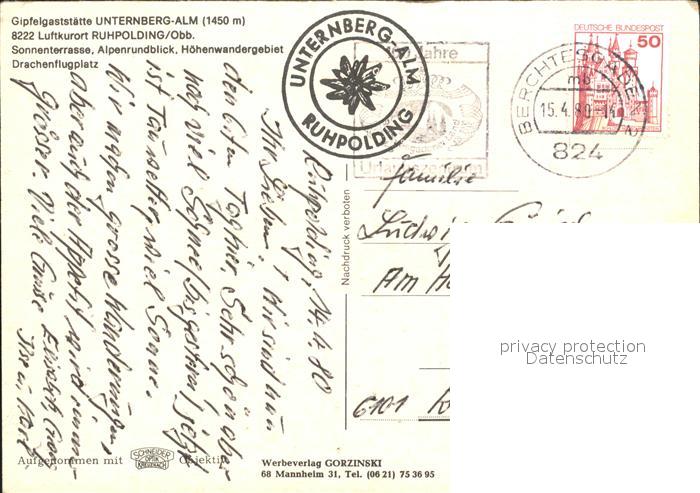 Gipfelgaststätte UNTERNBERG-ALM (1450 m)
8222 Luftkurort RUHPOLDING/Obb.
Sonnenterrasse, Alpenrundblick, Höhenwandergebiet
Drachenflugplatz
UNTERNBERG-ALM
RUHPOLDING
Jahre
DEUTSCHE BUNDESPOST
50
BERCHTESGADEN 2
mb
15.4.80-14
824
Ruhpolding, 14.4.80
Ihr Lieben! Wir sind nun
den 6ten Tag hier. Sehr schön aber
noch viel Schnee! Bis gestern! jetzt
ist Tauwetter, viel Sonne.
Wir machen grosse Wanderungen,
aber auch der Appetit wird immer
grösser. Viele Grüsse Elisabeth
Familie
Ludwig
Am
6101
Nachdruck verboten
privacy protection
Datenschutz
Aufgenommen mit SCHNEIDER OPTIK KREUZNACH Objektiv
Werbeverlag GORZINSKI
68 Mannheim 31, Tel. (06 21) 75 36 95